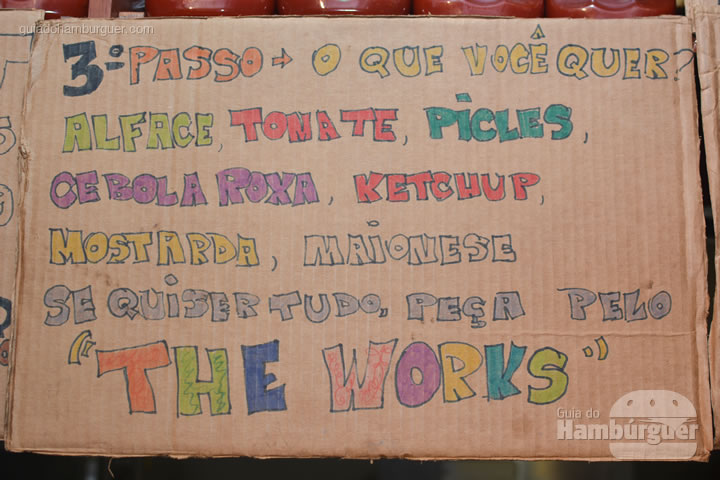 guiadohamburguer.com
3º PASSO → O QUE VOCÊ QUER?
ALFACE, TOMATE, PICLES,
CEBOLA ROXA, KETCHUP,
MOSTARDA, MAIONESE
SE QUISER TUDO, PEÇA PELO
"THE WORKS"
Guia do
Hambúrguer